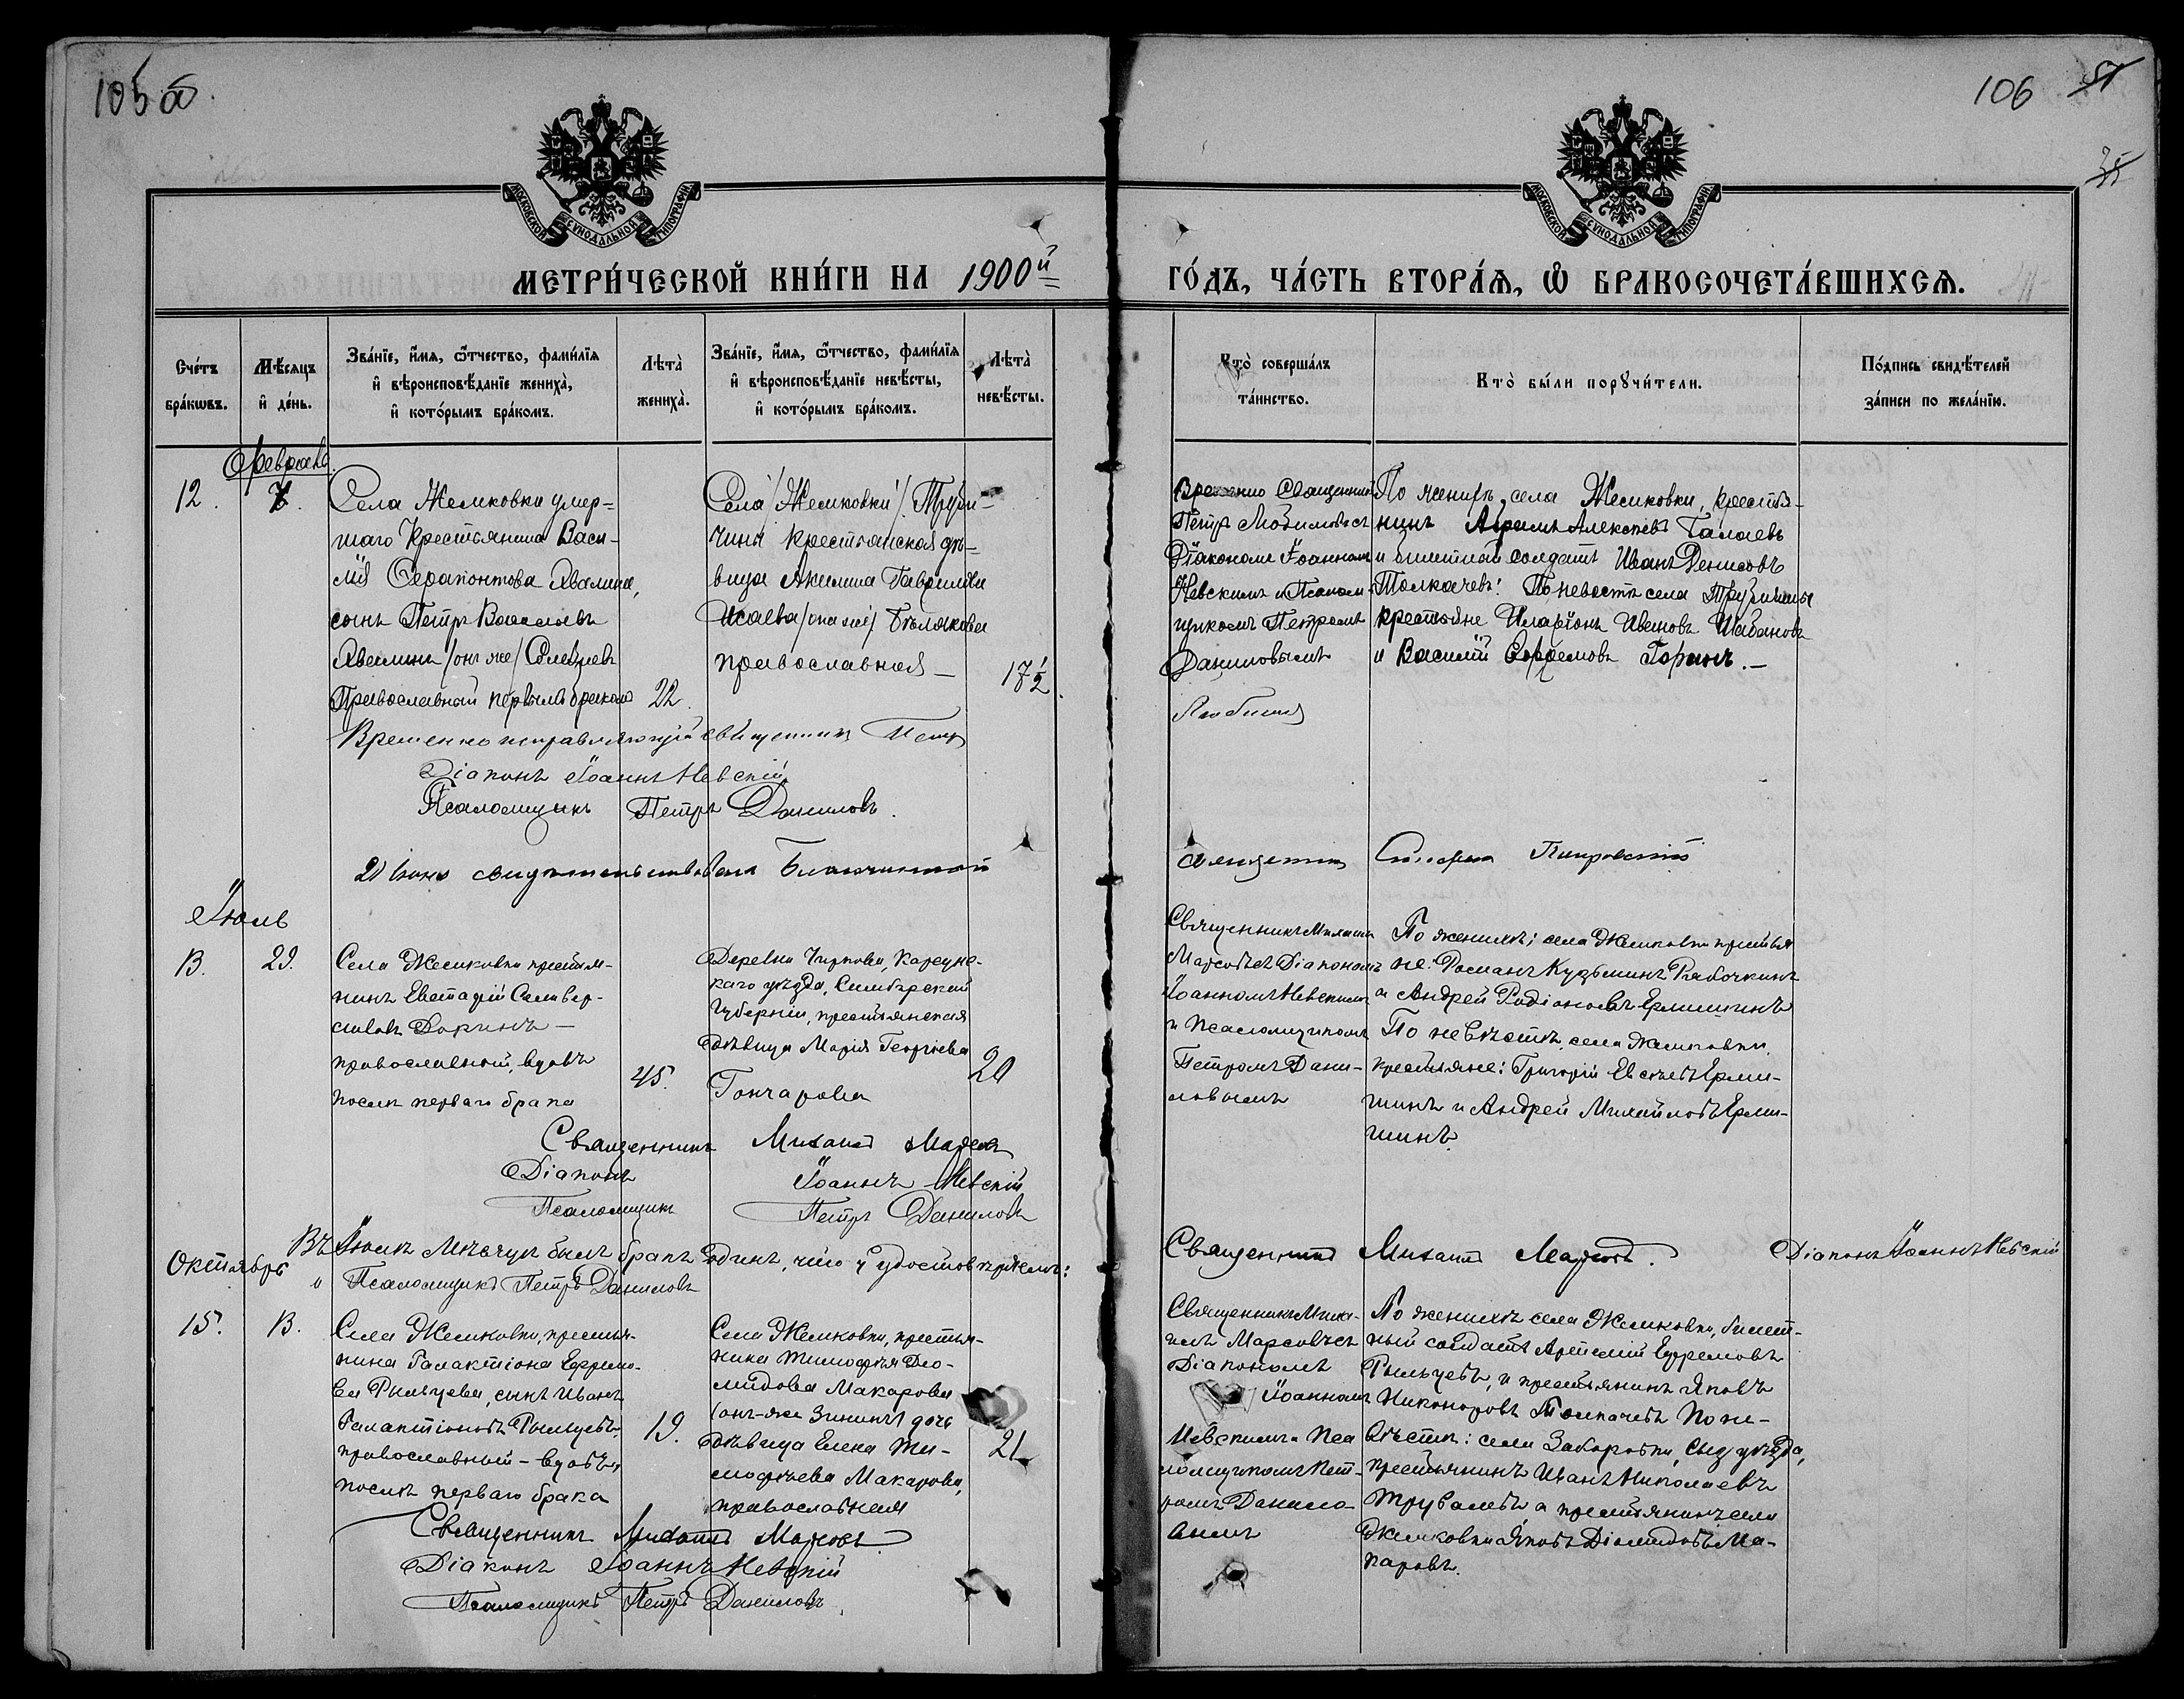 105 об
106
МОСКОВСКОЙ СѴНОДАЛЬНОЙ ТИПОГРАФІИ
МОСКОВСКОЙ СѴНОДАЛЬНОЙ ТИПОГРАФІИ
МЕТРИ́ЧЕСКОЙ КНИ́ГИ НА 1900й
ГО́ДЪ, ЧА́СТЬ ВТОРА́Ѧ, Ѡ҆ БРАКОСОЧЕТА́ВШИХСѦ.
Сче́тъ бра́кѡвъ.
Мѣ́сѧцъ и҆ де́нь.
Зва́нїе, и҆́мѧ, ѻ҆́тчество, фами́лїѧ
и҆ вѣроисповѣ́данїе жениха̀,
и҆ кото́рымъ бра́комъ.
Лѣта̀
жениха̀.
Зва́нїе, и҆́мѧ, ѻ҆́тчество, фами́лїѧ
и҆ вѣроисповѣ́данїе невѣ́сты,
и҆ кото́рымъ бра́комъ.
Лѣта̀
невѣ́сты.
Кто̀ соверша́лъ
та́инство.
Кто̀ бы́ли порꙋчи́тели.
По́дпись свидѣ́телей
за́писи по жела́нїю.
Февраль.
12.
7.
Села Жемковки умер=
шаго Крестьянина Васи-
лія Серапонтова Авалина,
сынъ Петръ Васильевъ
Авалинъ /онъ же/
Православный первымъ бракомъ
22.
Села /Жемковки/ Труби-
чины крестьянская дѣ-
вица Акилина Гаврилова
Исаева /она же/ Бѣлякова
православная —
17½.
Временно Священник
Петръ Любимовъ съ
Діакономъ Іоанномъ
Невскимъ и Псалом-
щикомъ Петромъ
Даниловымъ
По женихѣ, села Жемковки, крестья-
нинъ Абрамъ Алексѣевъ Галаевъ
и билетный солдатъ Иванъ Денисовъ
Толкачевъ. По невѣстѣ села
крестьяне Иларіонъ Ивановъ Шабановъ
и Василій Ефремовъ Горинъ. —
Временно исправляющій священникъ Петръ
Любимов
Діаконъ Іоаннъ Невскій
Псаломщикъ Петръ Даниловъ.
21 Іюня свидѣтельствовалъ Благочинный
священникъ Покровскій
Іюль
13.
29.
Села Жемковки крестья-
нинъ Евстафій Сельвер-
стовъ Доринъ —
православный, вдовъ
послѣ перваго брака
45.
Деревни Чирковы, Карсунс-
каго уѣзда, Симбирской
Губерніи, крестьянская
дѣвица Марія Георгіева
Гончарова
20
Священникъ Михаилъ
Марсовъ съ Діакономъ
Іоанномъ Невскимъ
и Псаломщикомъ
Петромъ Дани-
ловымъ
По женихѣ; села Жемковки крестья
не: Романъ Кузьминъ Рябочкинъ
и Андрей Родіоновъ Ермишинъ
По невѣстѣ, села Жемковки,
крестьяне: Григорій Евсѣевъ Ерми-
шинъ и Андрей Михайловъ Ерми-
шинъ.
Священникъ Михаилъ Марсовъ
Діаконъ Іоаннъ Невскій
Псаломщикъ Петръ Даниловъ
Въ Іюлѣ Мѣсяцѣ былъ бракъ одинъ, что и удостовѣряемъ:
Священникъ Михаилъ Марсовъ. Діаконъ Іоаннъ Невскій
и Псаломщикъ Петръ Даниловъ
Октябрь
15.
13.
Села Жемковки, крестья-
нина Галактіона Ефремо-
ва Рыльцева, сынъ Иванъ
Галактіоновъ Рыльцевъ,
православный – вдовъ,
послѣ перваго брака
19.
Села Жемковки, крестья-
нина Тимофѣя Дио-
мидова Макарова
(онъ-же Зининъ) дочь
дѣвица Елена Ти-
мофѣева Макарова,
православная
21
Священникъ Миха-
илъ Марсовъ съ
Діакономъ
Іоанномъ
Невскимъ и Пса
ломщикомъ Пет-
ромъ Данило-
вымъ
По женихѣ села Жемковки, билет-
ный солдатъ Арсеній Ефремовъ
Рыльцевъ, и крестьянинъ Яковъ
Никоноровъ Толкачевъ По не-
вѣстѣ: села Заборовки, Сыз. уѣзда,
крестьянинъ Иванъ Николаевъ
Трубалевъ и крестьянинъ села
Жемковки Яковъ Діомидовъ Ма-
каровъ.
Священникъ Михаилъ Марсовъ
Діаконъ Іоаннъ Невскій
Псаломщикъ Петръ Даниловъ.